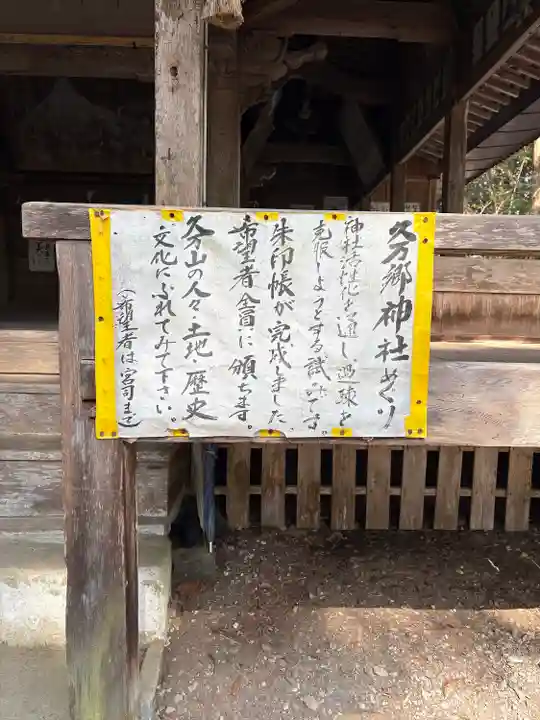 久万郷神社めぐり
神社活性化を通し過疎を
克服しようとする試みです。
朱印帳が完成しました
希望者全員に頒ちます。
久万山の人々土地歴史
文化にふれてみて下さい。
(希望者は宮司まで)